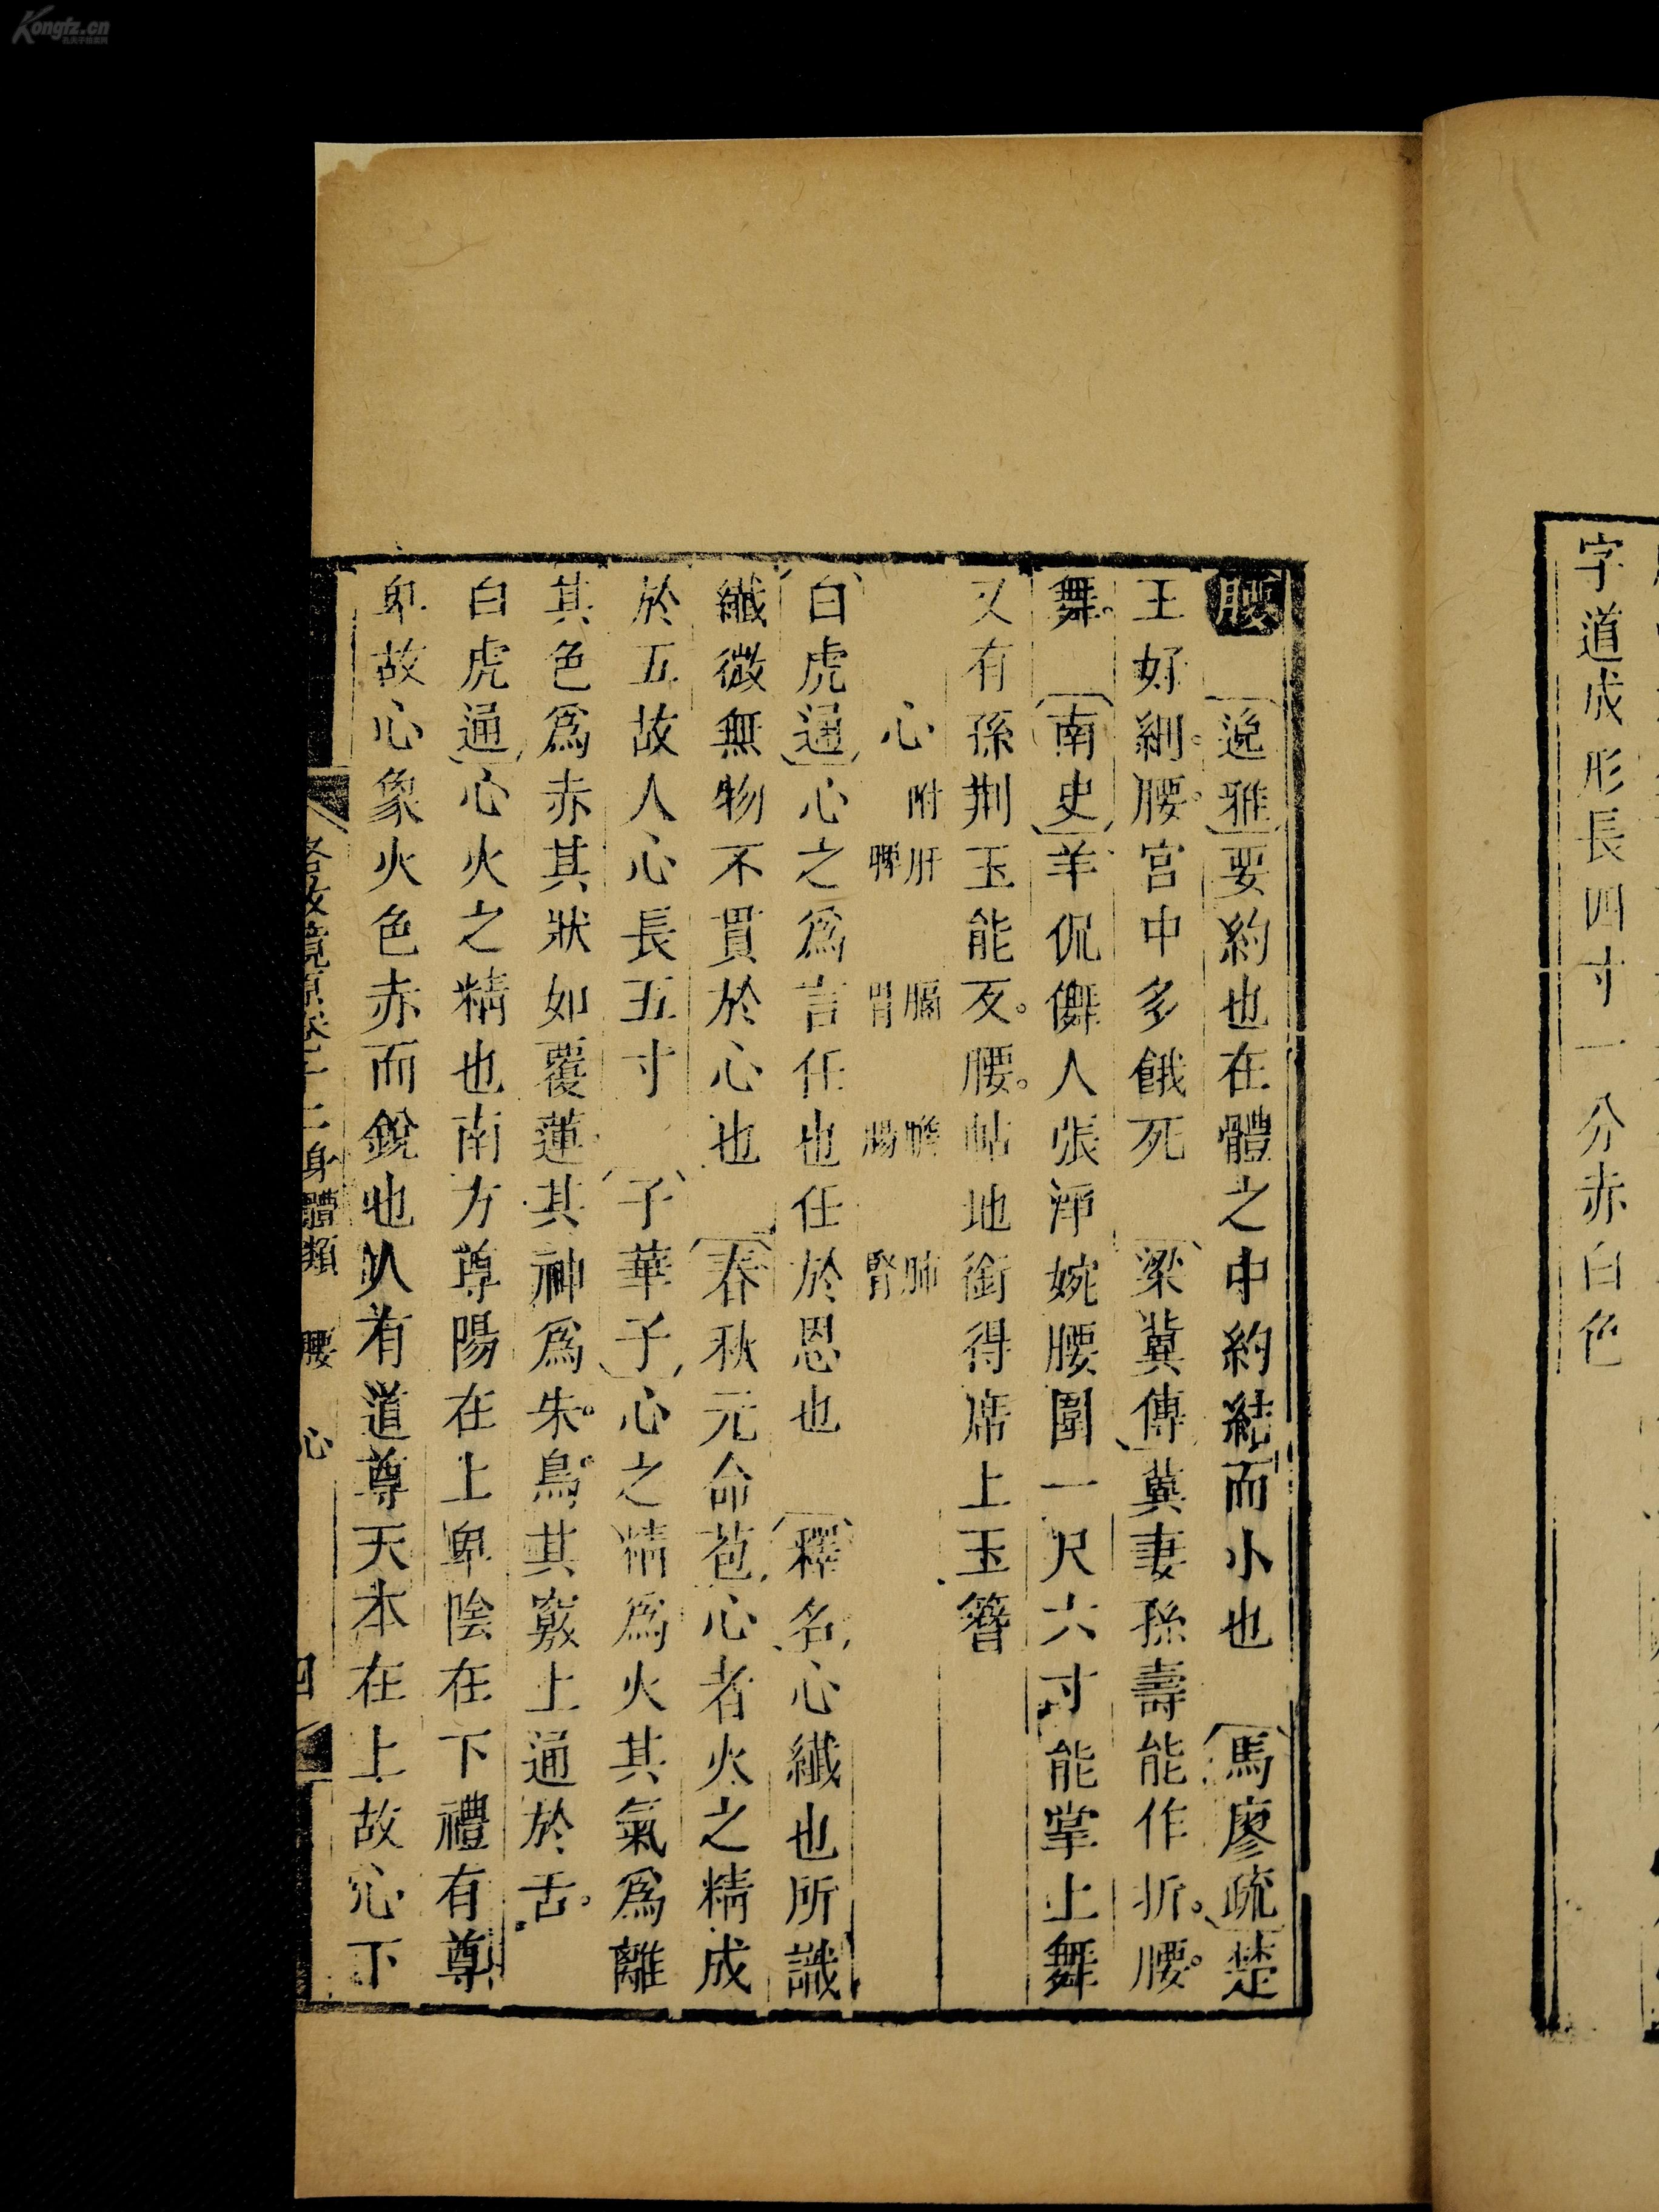 字道成形長四寸一分赤白色
腰 逸雅要約也在體之中約結而小也 馬廖疏楚
王好細腰宮中多餓死 梁冀傳冀妻孫壽能作折腰
舞 南史羊侃儛人張淨婉腰圍一尺六寸能掌上舞
又有孫荆玉能反腰帖地銜得席上玉簪
心 附肝 膈 膽 肺
脾 胃 腸 腎
白虎通心之爲言任也任於恩也 釋名心纖也所識
纖微無物不貫於心也 春秋元命苞心者火之精成
於五故人心長五寸 子華子心之精爲火其氣爲離
其色爲赤其狀如覆蓮其神爲朱鳥其竅上通於舌
白虎通心火之精也南方尊陽在上卑陰在下禮有尊
卑故心象火色赤而銳也人有道尊天本在上故心下
格致鏡原卷十二身體類 腰 心 四
Kongfz.cn